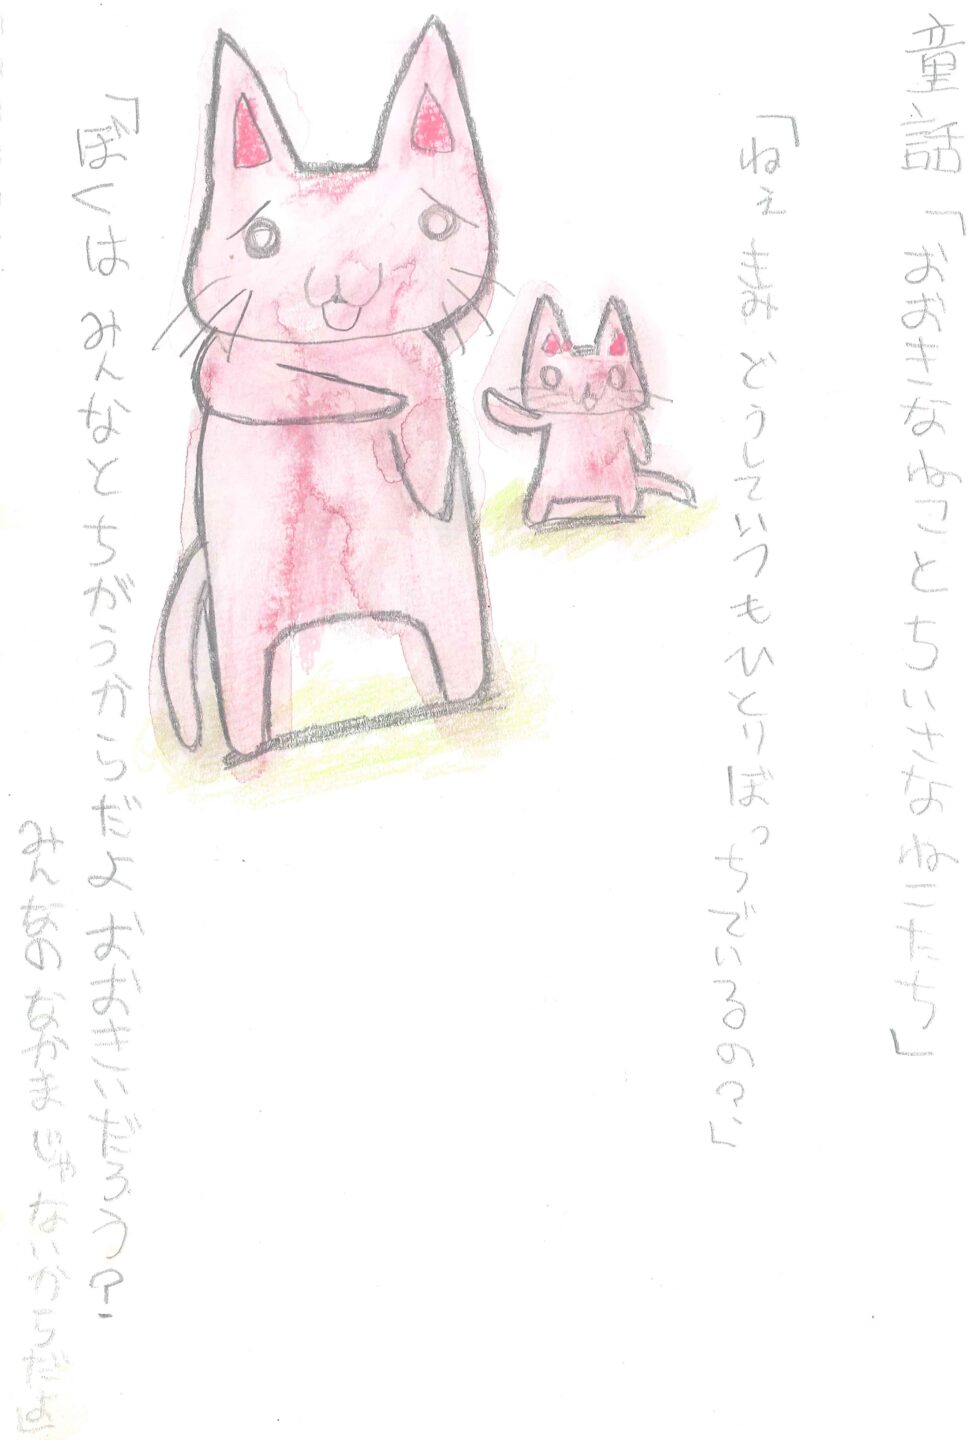 童話「おおきなねことちいさなねこたち」
「ねぇ きみ どうしていつもひとりぼっちでいるの?」
「ぼくは みんなとちがうからだよ おおきいだろう?
みんなの なかまじゃないからだよ」